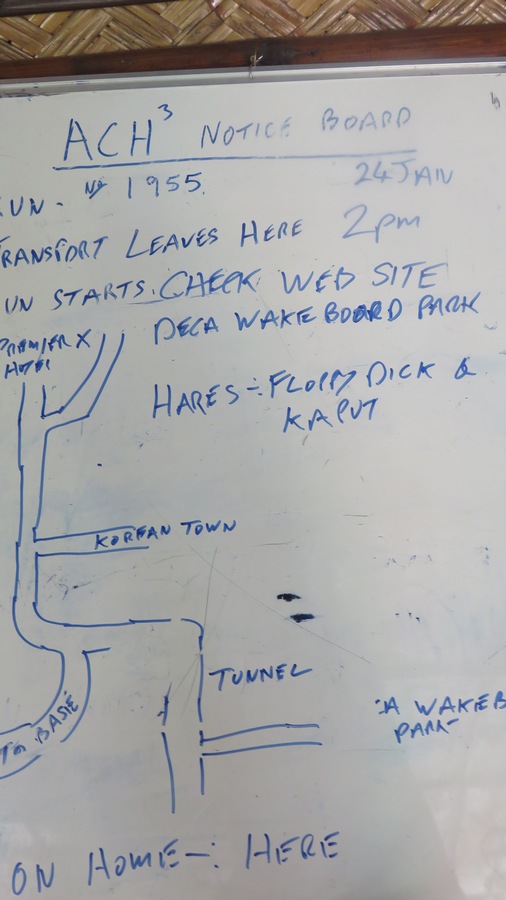 ACH³ NOTICE BOARD
UN - Nº 1955. 24 JAN
RANSPORT LEAVES HERE 2pm
UN STARTS. CHECK WEB SITE
PREMIER X DECA WAKE BOARD PARK
HOTEL
HARES -: FLOPPY DICK &
KAPUT
KOREAN TOWN
TUNNEL
:A WAKEB
PARK
To BASIE
ON HOME -: HERE